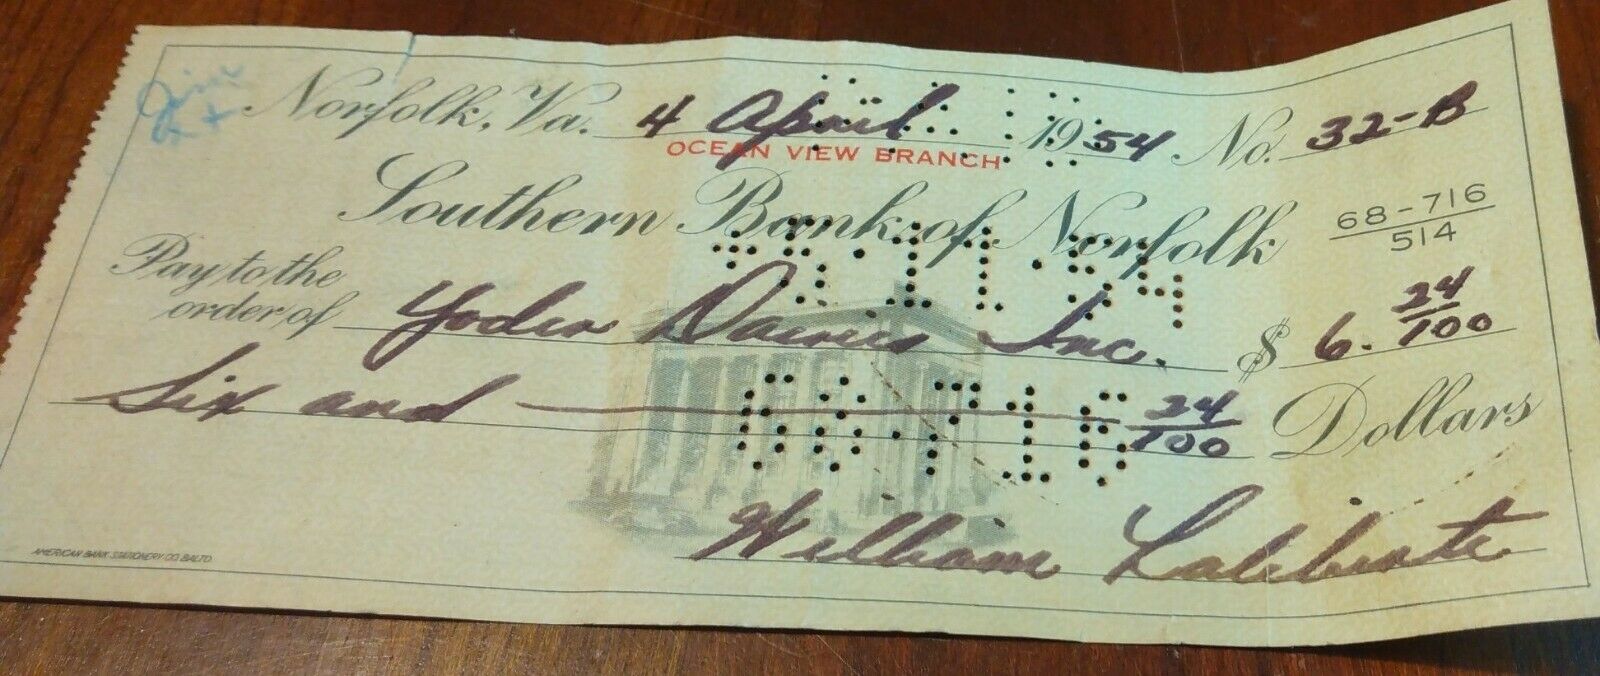 Norfolk, Va. 4 April 1954 No. 32-B
OCEAN VIEW BRANCH
Southern Bank of Norfolk
68-716
514
Pay to the
order of Yoder Dairies Inc. $ 6. 24/100
Six and 24/100 Dollars
68-716
William
AMERICAN BANK STATIONERY CO. BALTO.